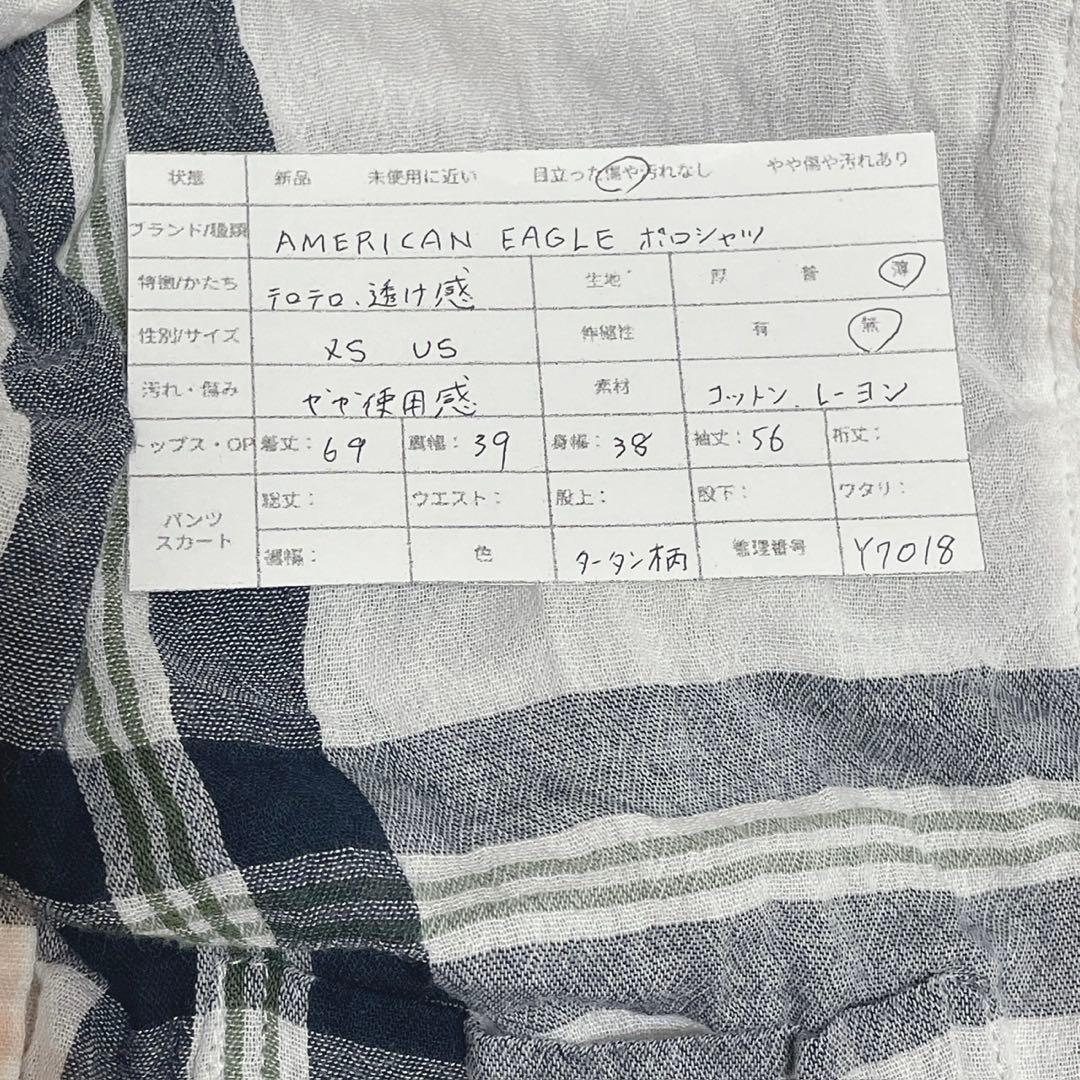 状態 新品 未使用に近い 目立った傷や汚れなし やや傷や汚れあり
ブランド/種類 AMERICAN EAGLE ポロシャツ
特徴/かたち テロテロ、透け感 生地 厚 普 薄
性別/サイズ XS US 伸縮性 有 無
汚れ・傷み やや使用感 素材 コットン、レーヨン
トップス・OP 着丈: 69 肩幅: 39 身幅: 38 袖丈: 56 裄丈:
パンツ スカート 総丈: ウエスト: 股上: 股下: ワタリ:
裾幅: 色 タータン柄 管理番号 Y7018